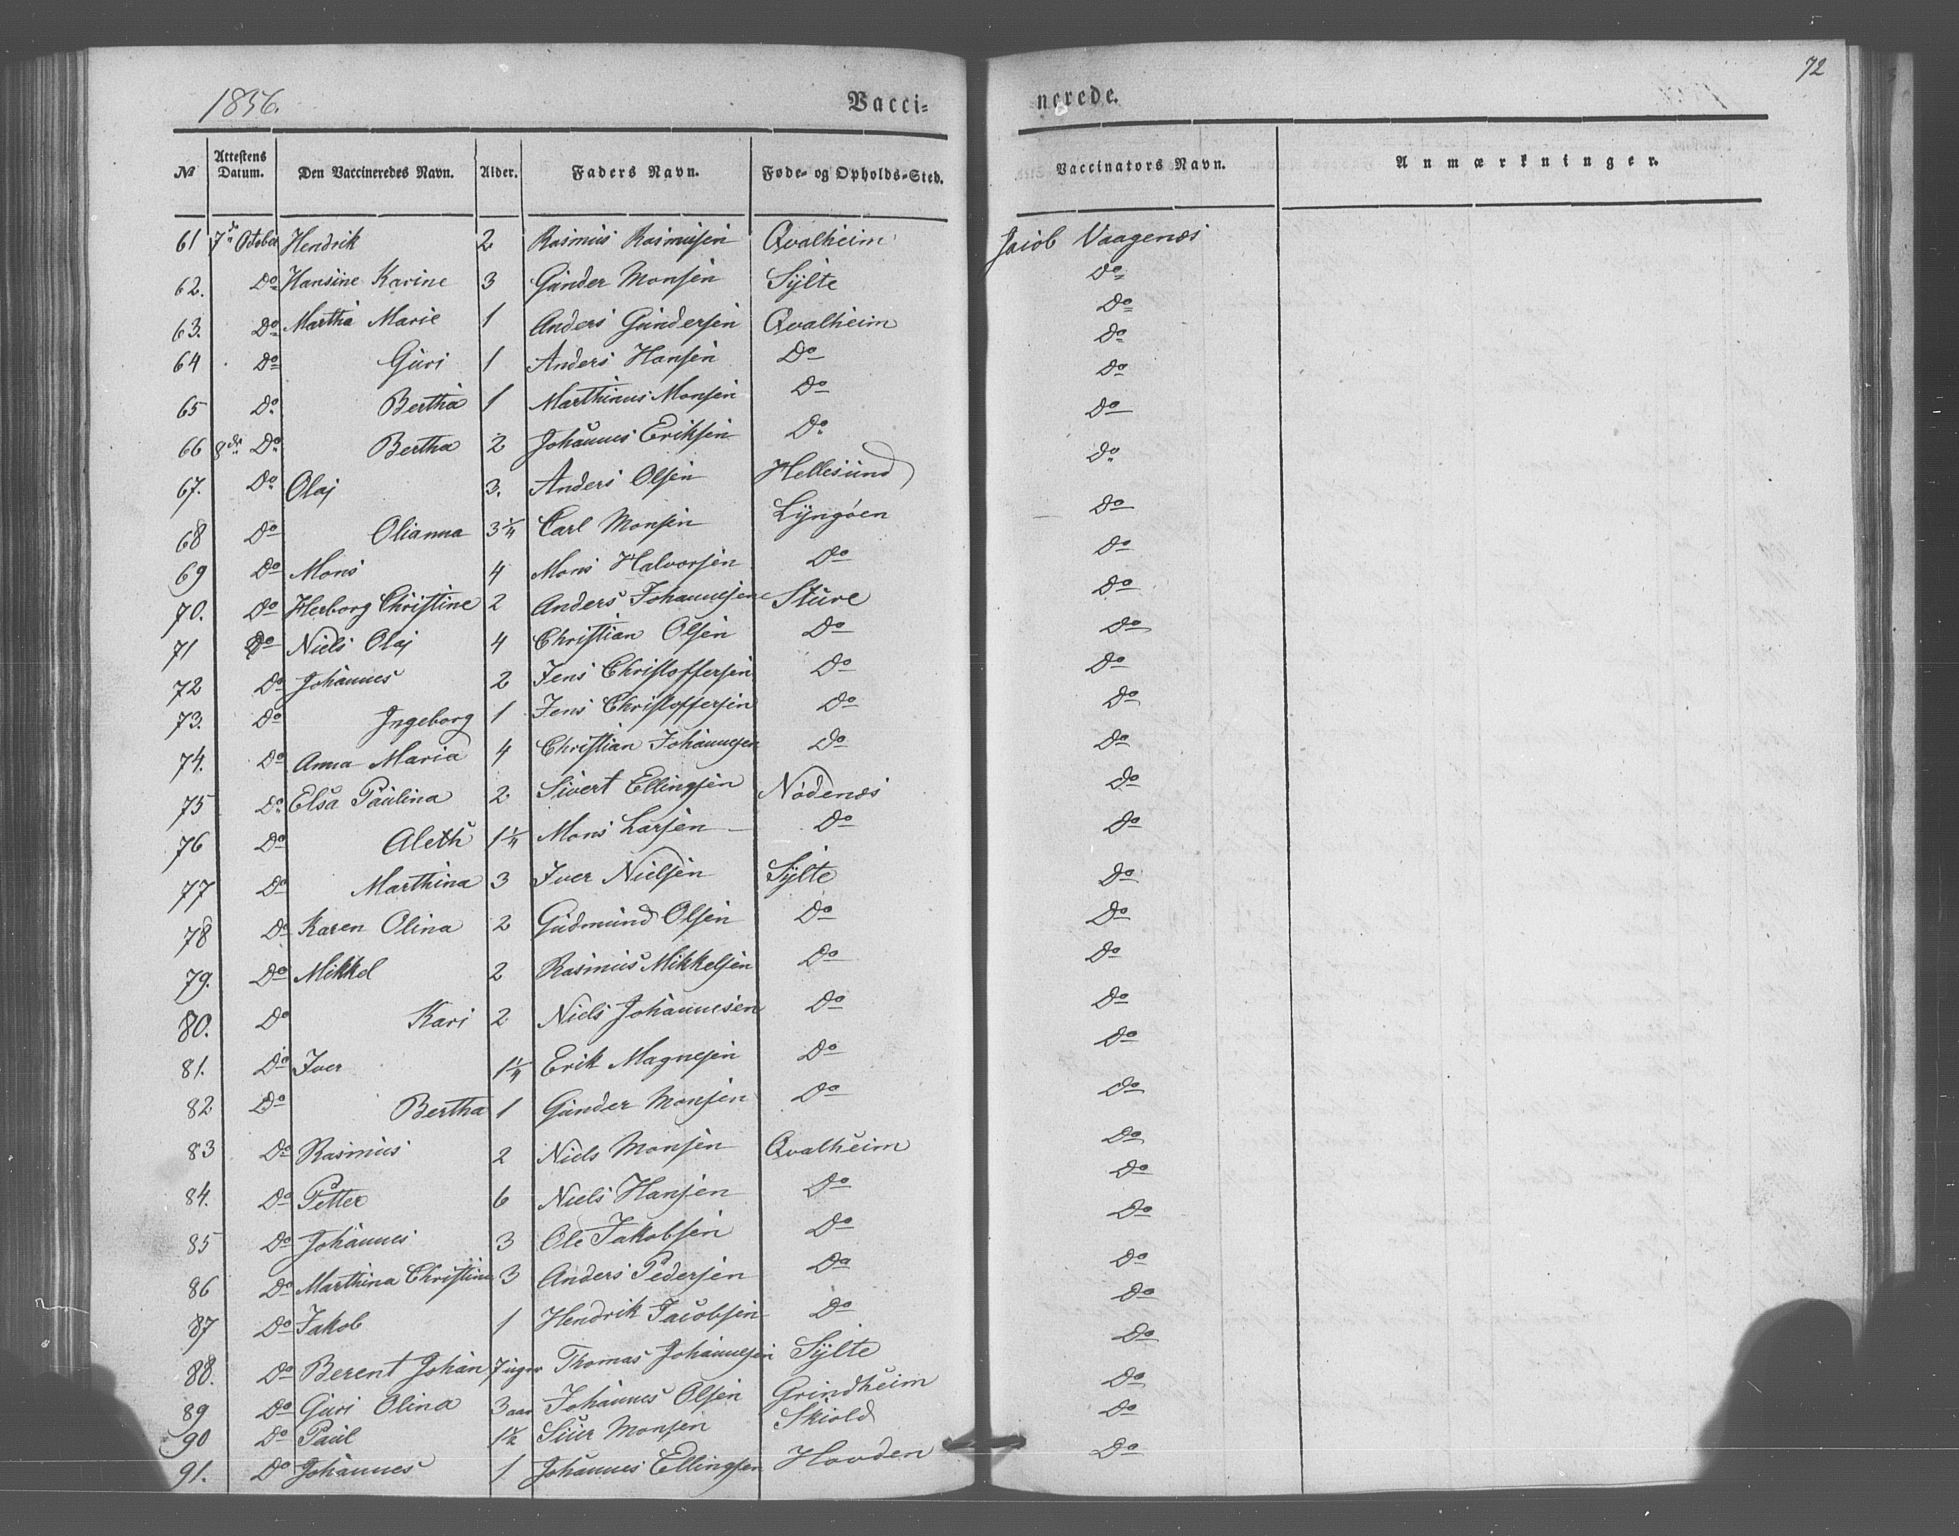 72
1856. Vaccinerede.
No Attestens Datum. Den Vaccineredes Navn. Alder. Faders Navn. Føde- og Opholds-Sted. Vaccinators Navn. Anmærkninger.
61 7de October Hendrik 2 Rasmus Rasmusen Qvalheim Jacob Vaagenæs
62. Do Hansine Karine 3 Gunder Monsen Sylte Do
63. Do Martha Marie 1 Anders Gundersen Qvalheim Do
64 Do Guri 1 Anders Hansen Do Do
65 Do Bertha 1 Marthinus Monsen Do Do
66 8de Do Bertha 2 Johannes Eriksen Do Do
67. Do Olaj 3. Anders Olsen Hellesund Do
68 Do Olianna 3¼ Carl Monsen Lyngøen Do
69 Do Mons 4 Mons Halvorsen Do Do
70. Do Herborg Christine 2 Anders Johannesen Sture Do
71 Do Niels Olaj 4 Christian Olsen Do Do
72 Do Johannes 2 Jens Christoffersen Do Do
73. Do Ingeborg 1 Jens Christoffersen Do Do
74. Do Anna Maria 4 Christian Johannesen Do Do
75 Do Elsa Paulina 2 Sivert Ellingsen Nødenæs Do
76 Do Aleth 1¼ Mons Larsen Do Do
77 Do Marthina 3 Iver Nielsen Sylte Do
78 Do Karen Olina 2 Gudmund Olsen Do Do
79. Do Mikkel 2 Rasmus Mikkelsen Do Do
80. Do Kari 2 Niels Johannesen Do Do
81. Do Iver 1¼ Erik Magnesen Do Do
82 Do Bertha 1 Gunder Monsen Do Do
83 Do Rasmus 2 Niels Monsen Qvalheim Do
84. Do Petter 6 Niels Hansen Do Do
85 Do Johannes 3 Ole Jakobsen Do Do
86 Do Marthina Christine 3 Anders Pedersen Do Do
87 Do Jakob 1 Hendrik Jacobsen Do Do
88. Do Berent Johan 7 uger Thomas Johannesen Sylte Do
89 Do Guri Olina 3 aar Johannes Olsen Grindheim Do
90 Do Paul 1½ Siur Monsen Skiold Do
91. Do Johannes 1 Johannes Ellingsen Hovden Do